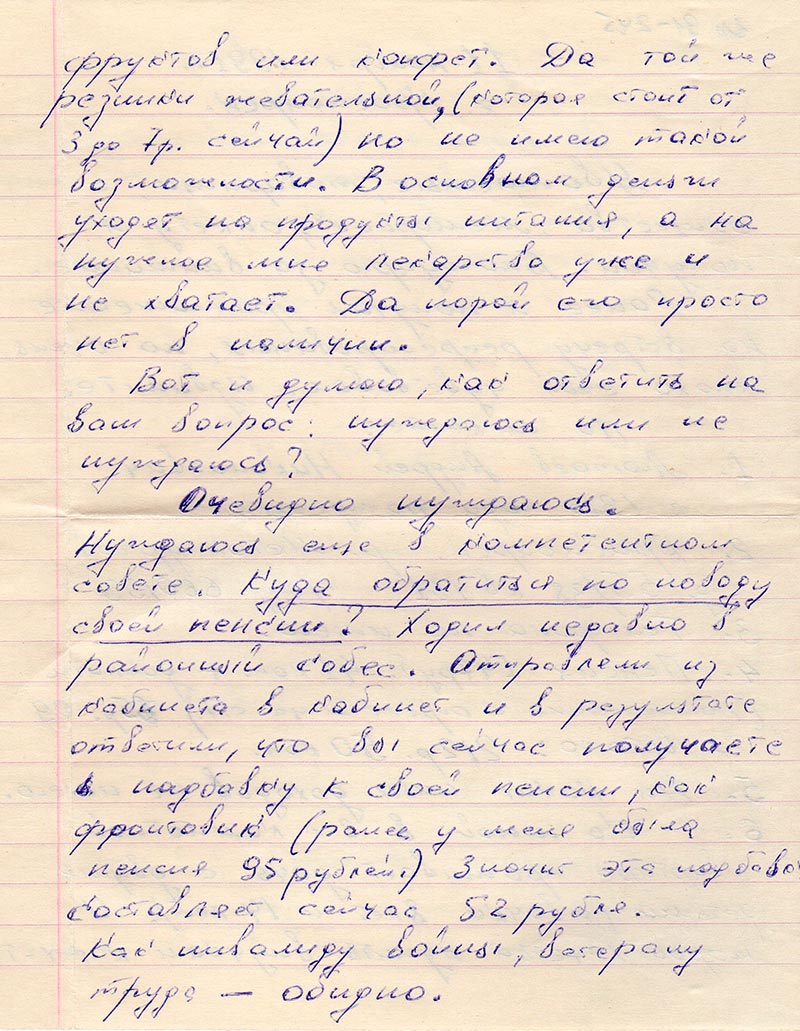 фруктов или конфет. Да той же
резинки жевательной, (которая стоит от
3 до 7р. сейчас) но не имею такой
возможности. В основном деньги
уходят на продукты питания, а на
нужное мне лекарство уже и
не хватает. Да порой его просто
нет в наличии.
Вот и думаю, как ответить на
ваш вопрос: нуждаюсь или не
нуждаюсь?
Очевидно нуждаюсь.
Нуждаюсь еще в компетентном
совете. Куда обратиться по поводу
своей пенсии? Ходил недавно в
районный собес. Отправляли из
кабинета в кабинет и в результате
ответили, что вы сейчас получаете
надбавку к своей пенсии, как
фронтовик (ранее у меня была
пенсия 95 рублей.) Значит эта надбавка
составляет сейчас 52 рубля.
Как инвалиду войны, ветерану
труда — обидно.